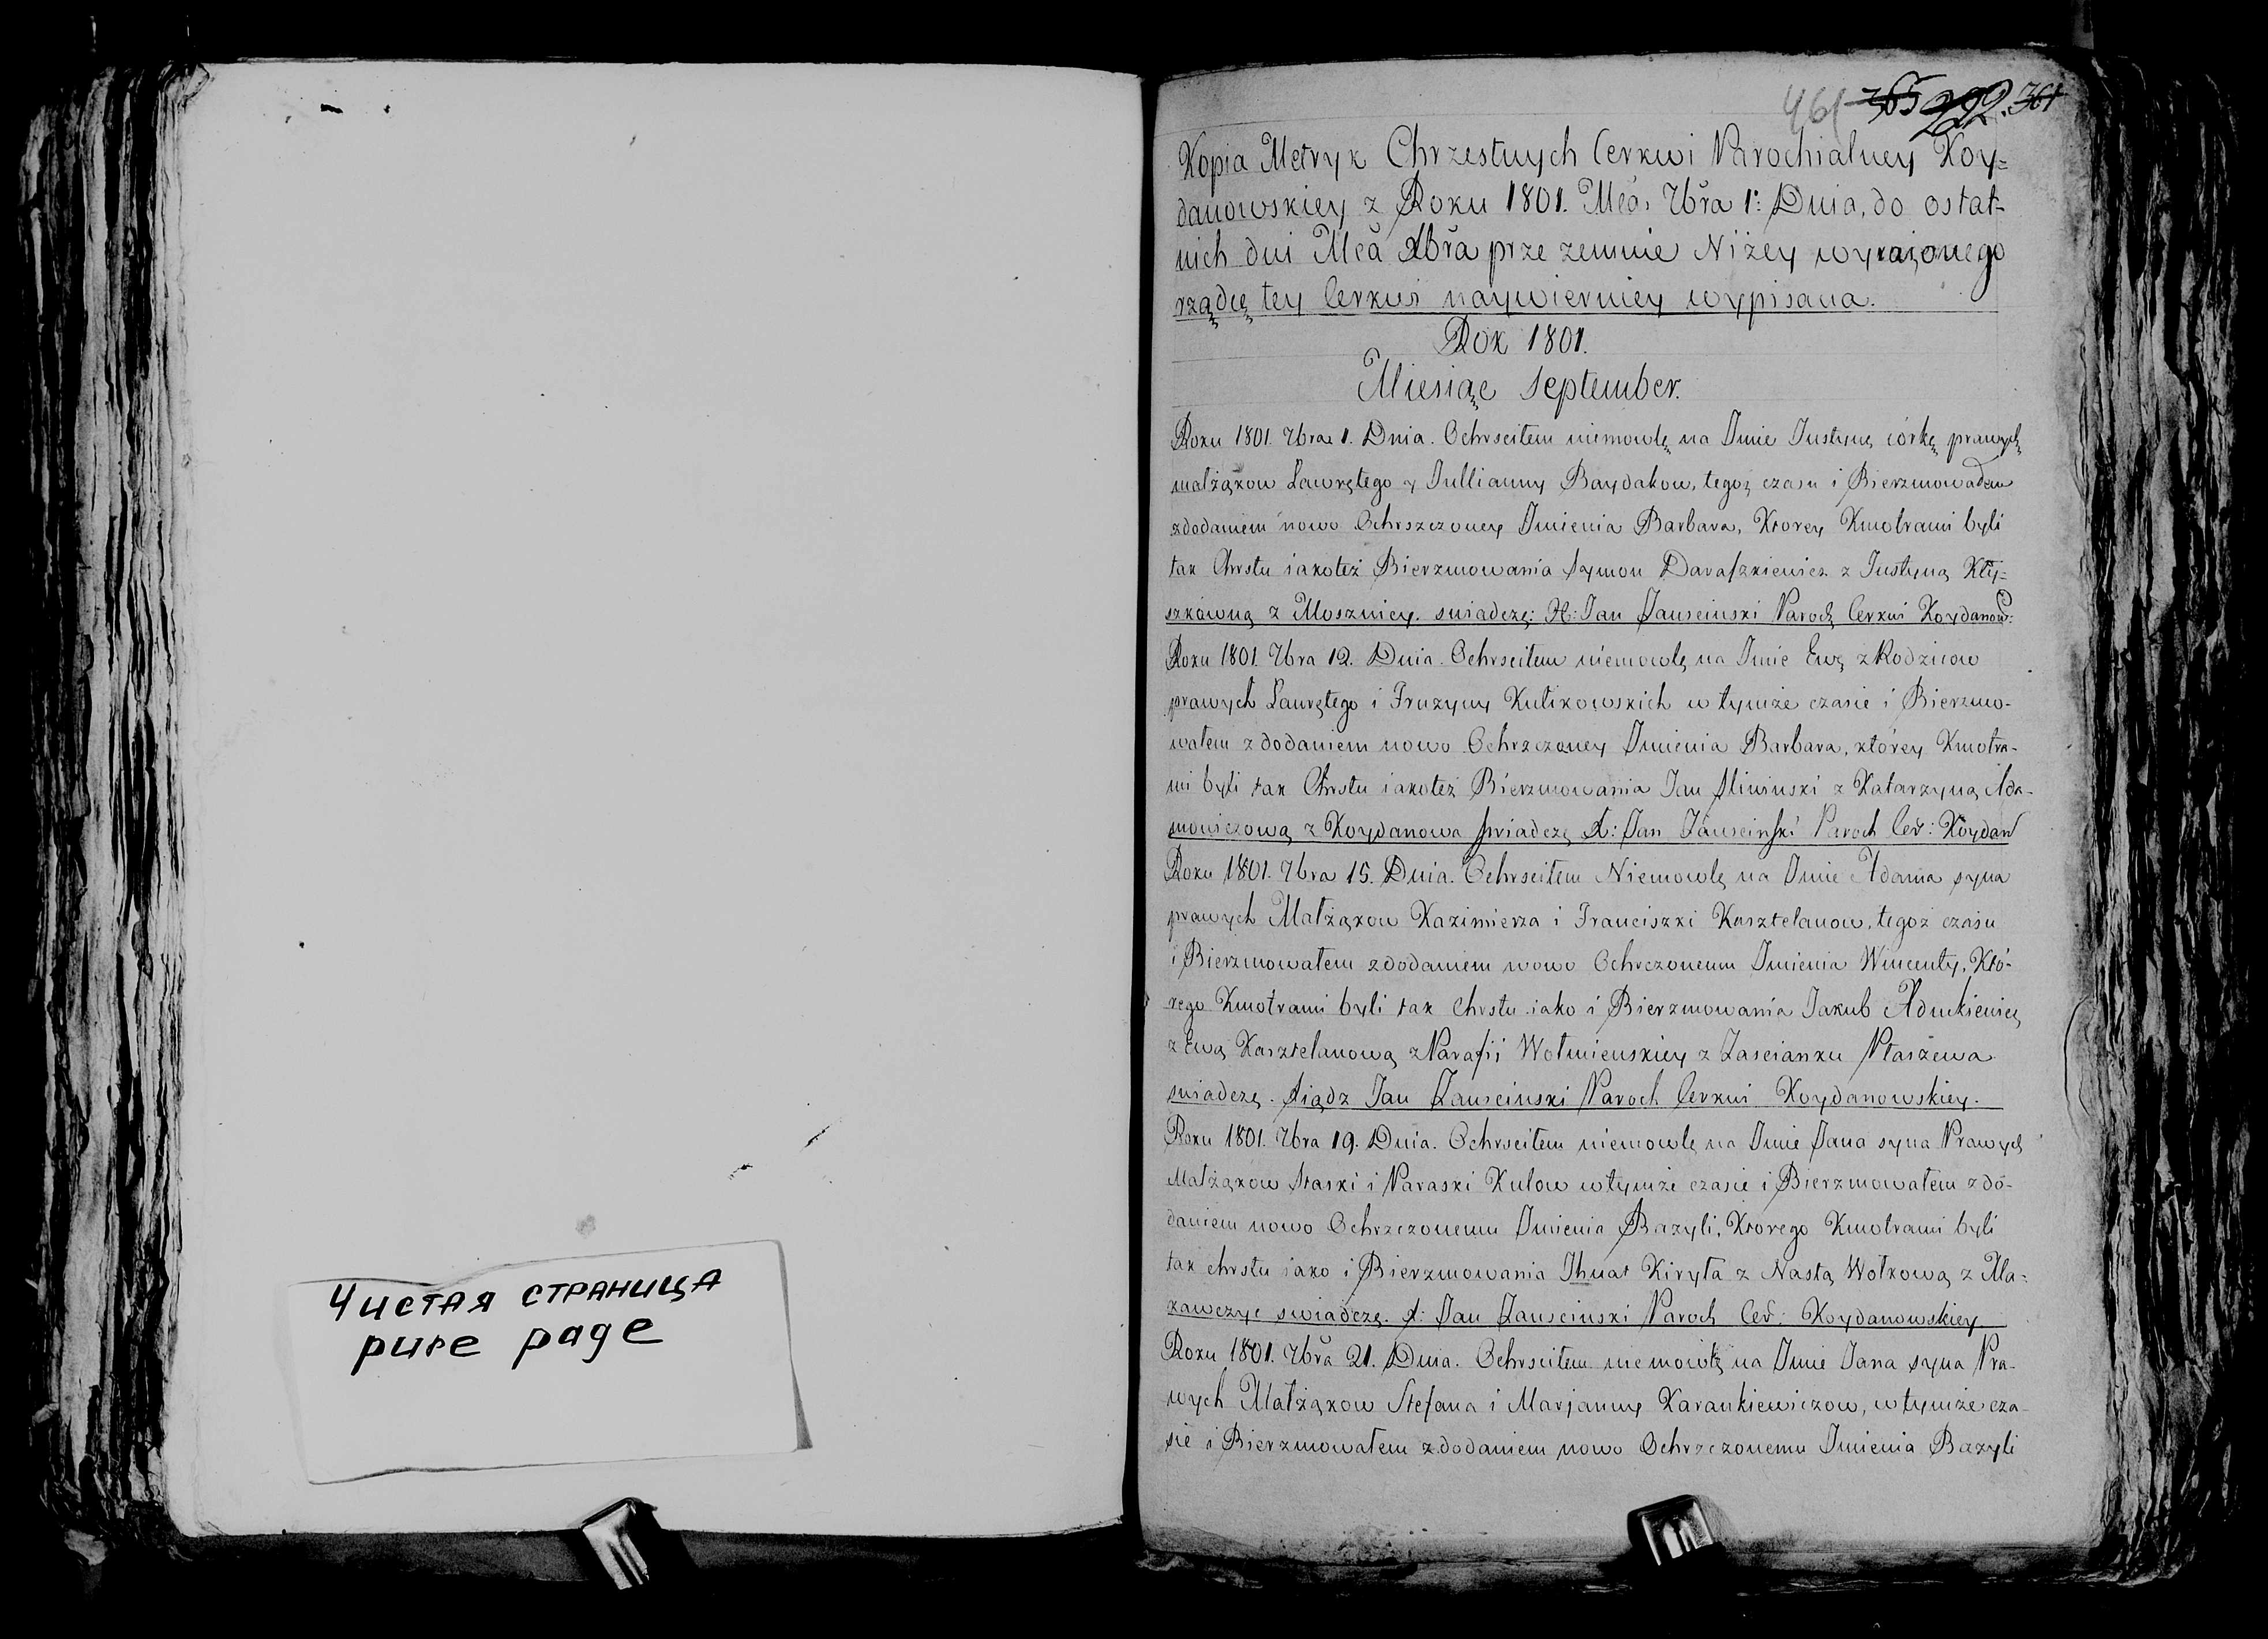 Чистая страница
pure page
461 365 292. 361
Kopia Metryk Chrzestnych Cerkwi Parochialney Koy=
danowskiey z Roku 1801. Mca 7bra 1: Dnia, do ostat-
nich dni Mca Xbra prze zemnie Niżey wyrażonego
rządcę tey Cerkwi naywierniey wypisana.
Rok 1801.
Miesiąc September.
Roku 1801. 7bra 1. Dnia. Ochrscitem niemowlę na Jmie Justynę córkę prawych
małżąkow Lawrętego y Jullianny Baydakow, tegoż czasu i Bierzmowałem
zdodaniem nowo Ochrszczoney Jmienia Barbara, Ktorey Kmotrami byli
tak Chrstu iakoteż Bierzmowania Symon Daraszkiewicz z Justyną Kły=
szkówną z Mosznicy. swiadczę: X: Jan Jauscinski Paroch Cerkwi Koydanow:
Roku 1801. 7bra 12. Dnia. Ochrscitem niemowlę na Jmie Ewę z Rodzicow
prawych Lawrętego i Fruzyny Kulikowskich w tymże czasie i Bierzmo-
wałem z dodaniem nowo Ochrzczoney Jmienia Barbara, którey Kmotra-
mi byli tak Chrstu iakoteż Bierzmowania Jan Sliwinski z Katarzyną Ada-
mowiczową z Koydanowa swiadczę X: Jan Jauscinski Paroch Cer: Koydan
Roku 1801. 7bra 15. Dnia. Ochrscitem Niemowlę na Jmie Adama syna
prawych Małżąkow Kazimierza i Franciszki Kasztelanow, tegoż czasu
i Bierzmowałem zdodaniem nowo Ochrczonemu Jmienia Wincenty, Któ-
rego Kmotrami byli tak Chrstu iako i Bierzmowania Jakub Aduckiewicz
z Ewą Kasztelanową z Parafii Wołmienskiey z Zascianku Ptaszewa
swiadczę. Xiądz Jan Jauscinski Paroch Cerkwi Koydanowskiey.
Roku 1801. 7bra 19. Dnia. Ochrscitem niemowlę na Jmie Jana syna Prawych
Małżąkow Staski i Paraski Kulow wtymże czasie i Bierzmowałem zdo-
daniem nowo Ochrzczonemu Jmienia Bazyli, Ktorego Kmotrami byli
tak chrstu iako i Bierzmowania Jhnat Kiryła z Nastą Wołkową z Ma-
kawczyc swiadczę. X: Jan Jauscinski Paroch Cer: Koydanowskiey
Roku 1801. 7bra 21. Dnia. Ochrscitem niemowlę na Jmie Jana syna Pra-
wych Małżąkow Stefana i Marjanny Karankiewiczow, w tymże cza-
sie i Bierzmowałem z dodaniem nowo Ochrzczonemu Jmienia Bazyli